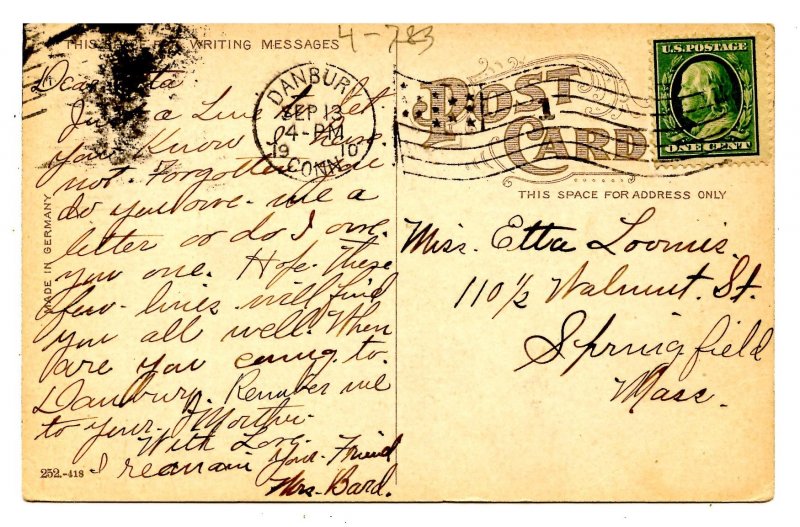 THIS SPACE FOR WRITING MESSAGES
4-783
Dear Etta
Just a Line to Let
you Know I have
not. Forgotten you
do you owe. me a
letter or do I owe.
you one. Hope. These
few. lines will find
you all well. When
are you coming to.
Danbury. Remember me
to your. Mother.
With Love.
I remain your. Friend
Mrs. Bard.
252.-418
MADE IN GERMANY
DANBURY
SEP 13
4-PM
1910
CONN.
POST
CARD
1
THIS SPACE FOR ADDRESS ONLY
U.S. POSTAGE
ONE CENT
Miss. Etta Loomis.
110 1/2 Walnut. St.
Springfield
Mass.